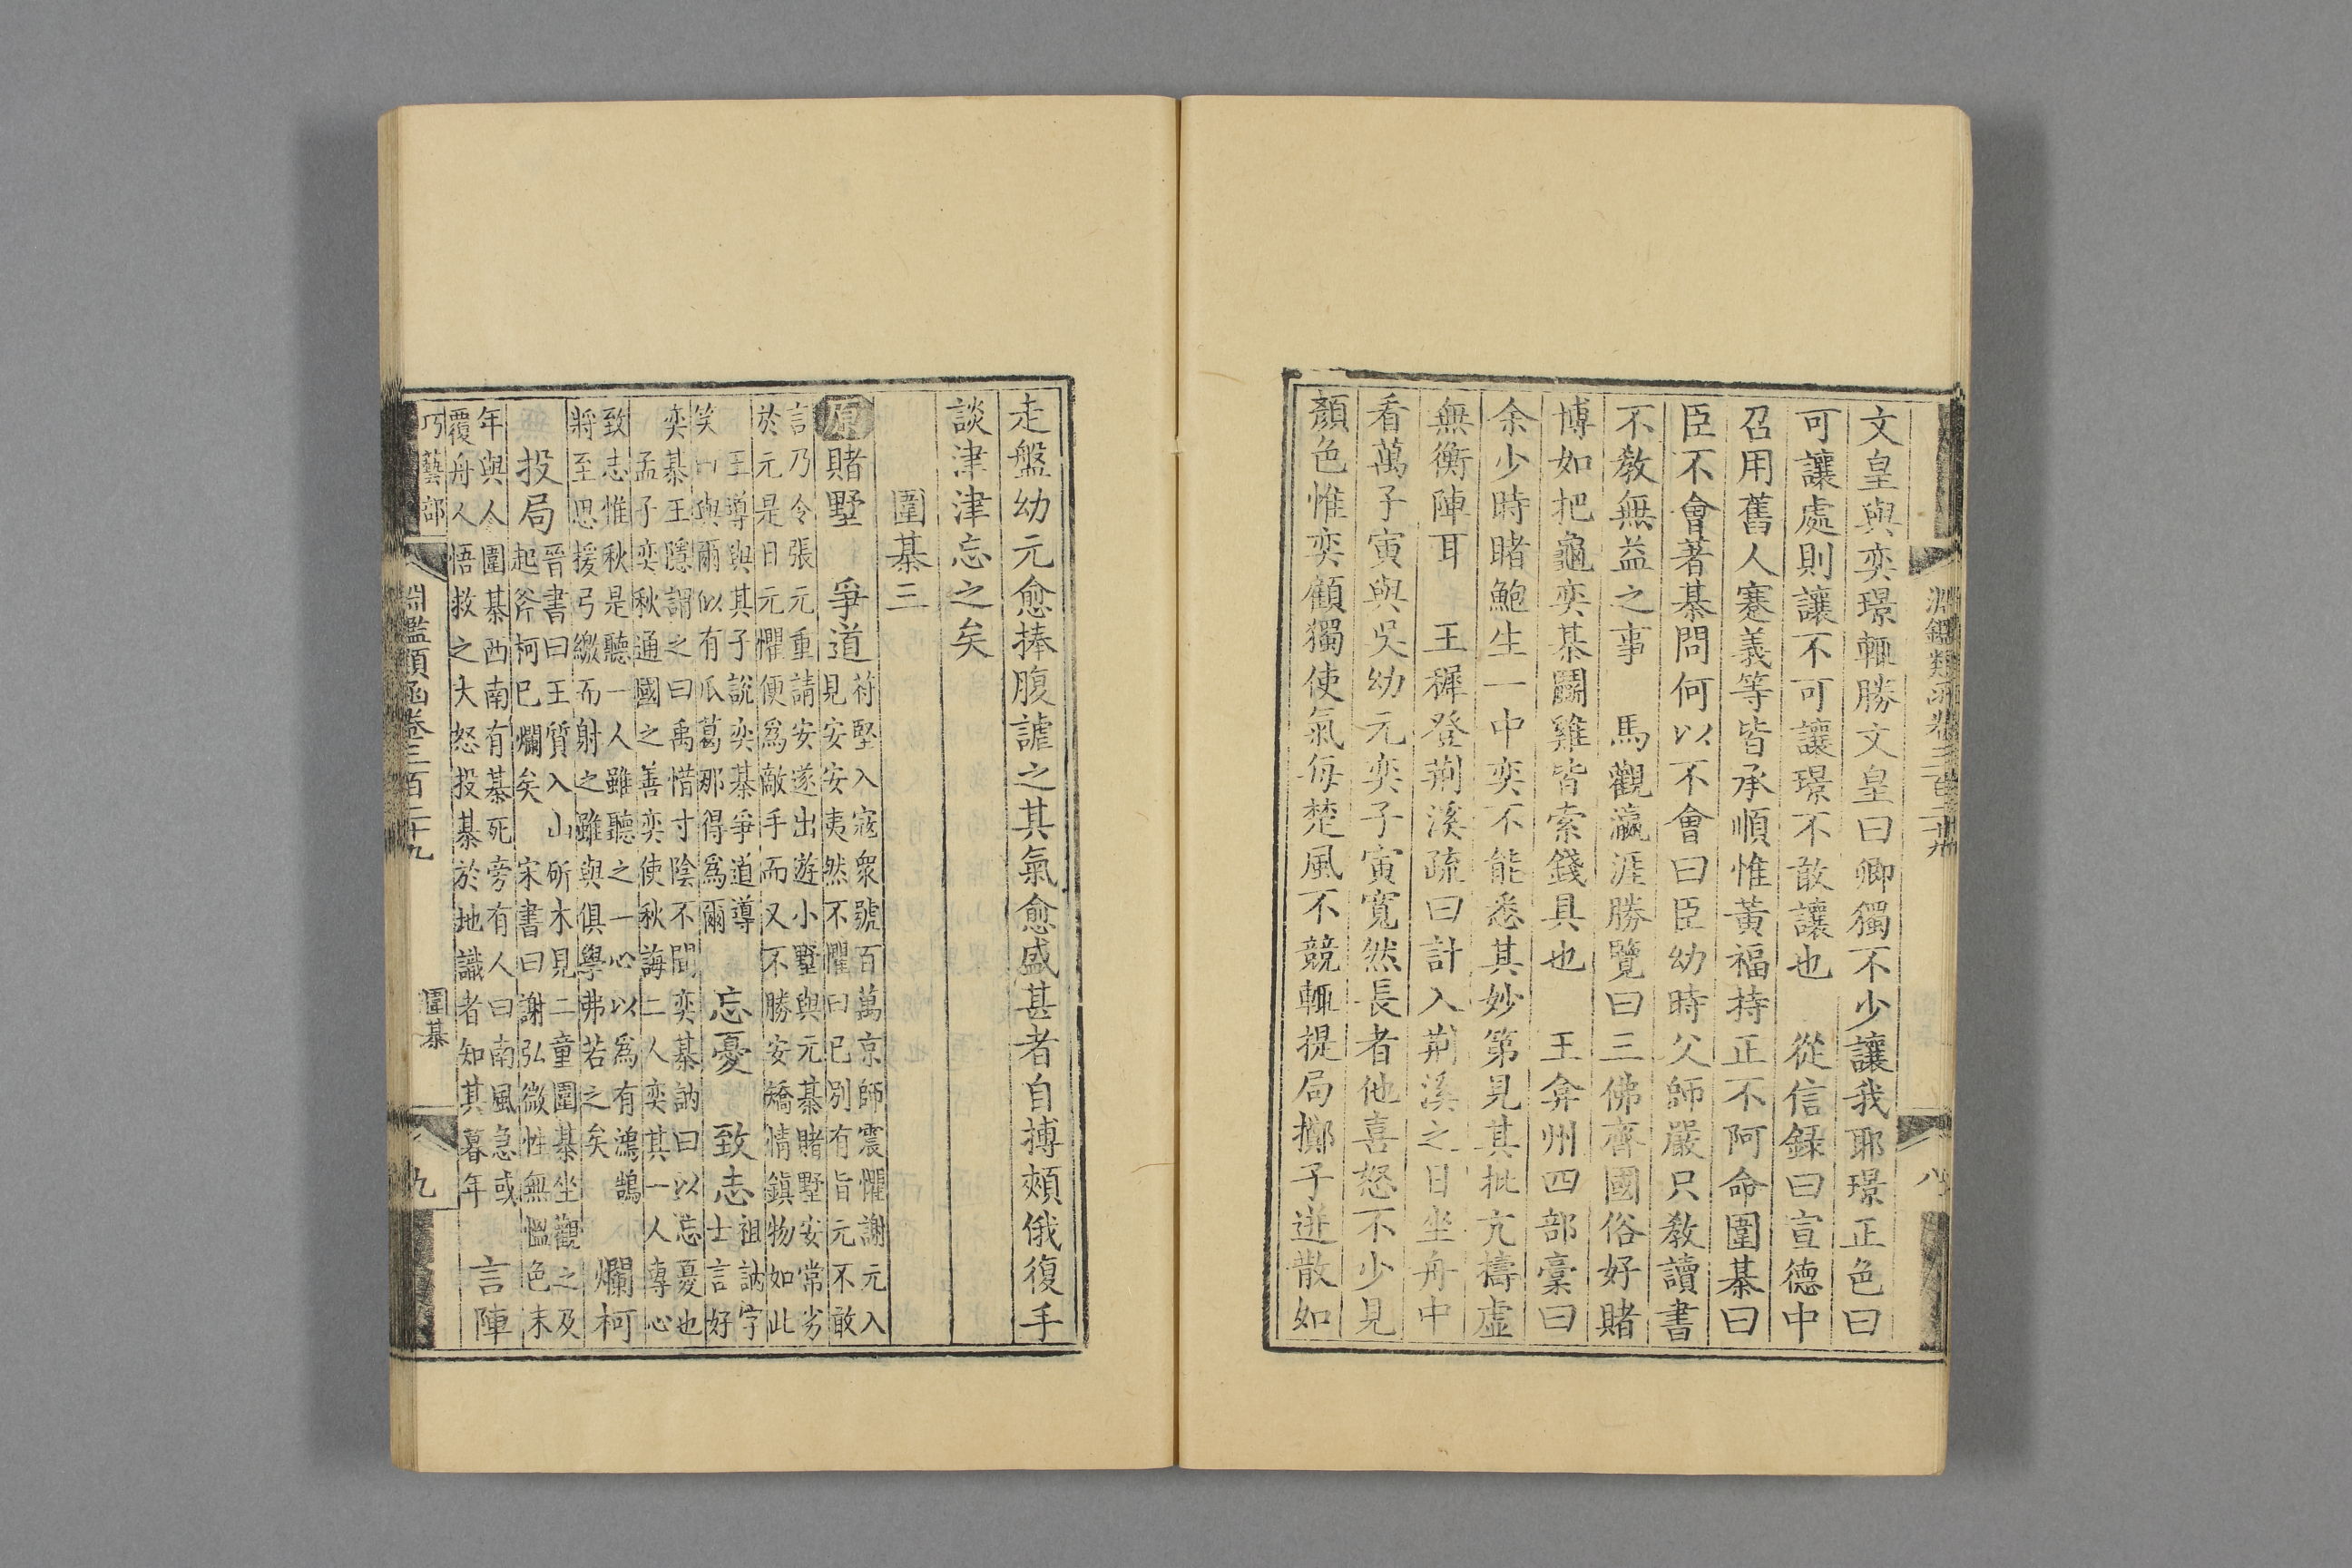 淵鑑類函卷三百二十九
八
文皇與奕璟輒勝文皇曰卿獨不少讓我耶璟正色曰
可讓處則讓不可讓璟不敢讓也　從信録曰宣德中
召用舊人蹇義等皆承順惟黃福持正不阿命圍棊曰
臣不會著棊問何以不會曰臣幼時父師嚴只教讀書
不教無益之事　馬觀瀛涯勝覽曰三佛齊國俗好賭
博如把龜奕棊鬭雞皆索錢具也　王弇州四部稾曰
余少時睹鮑生一中奕不能悉其妙第見其批亢擣虛
無衡陣耳　王穉登荆溪疏曰計入荆溪之日坐舟中
看萬子寅與吳幼元奕子寅寬然長者他喜怒不少見
顏色惟奕顧獨使氣每楚風不競輒提局擲子迸散如
走盤幼元愈捧腹謔之其氣愈盛甚者自搏頰俄復手
談津津忘之矣
圍棊三
原賭墅　爭道
苻堅入寇衆號百萬京師震懼謝元入
見安安夷然不懼曰已別有旨元不敢
言乃令張元重請安遂出遊小墅與元棊賭墅安常劣
於元是日元懼便爲敵手而又不勝安矯情鎮物如此
王導與其子說奕棊爭道導
笑曰與爾似有瓜葛那得爲爾
忘憂　致志
祖訥字
士言好
奕棊王隱謂之曰禹惜寸陰不聞奕棊訥曰以忘憂也
孟子奕秋通國之善奕使秋誨二人奕其一人專心
致志惟秋是聽一人雖聽之一心以爲有鴻鵠
將至思援弓繳而射之雖與俱學弗若之矣
爛柯
投局
晉書曰王質入山斫木見二童圍棊坐觀之及
起斧柯已爛矣　宋書曰謝弘微性無慍色末
年與人圍棊西南有棊死旁有人曰南風急或
覆舟人悟救之大怒投棊於地識者知其暮年
言陣
巧藝部
淵鑑類函卷三百二十九
圍棊
九